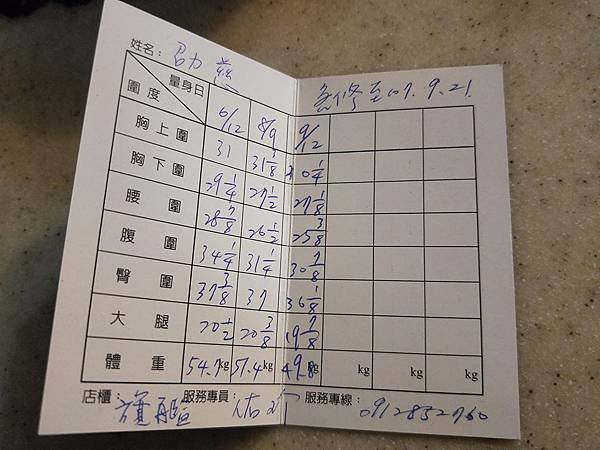 姓名：
免修至107.9.21
量身日 6/12 8/9 9/12
圍度
胸上圍 31 31 1/8 30 1/4
胸下圍 29 1/4 27 1/2 27 1/8
腰圍 28 7/8 26 1/2 25 3/8
腹圍 34 1/4 31 1/4 30 7/8
臀圍 37 3/8 37 36 1/8
大腿 20 1/2 20 3/8 19 7/8
體重 54.7kg 51.4kg 49.8kg kg kg kg
店櫃：旗艦 服務專員：佑 服務專線：0912832760